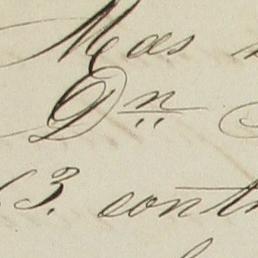 Mas
Dn
3. contr